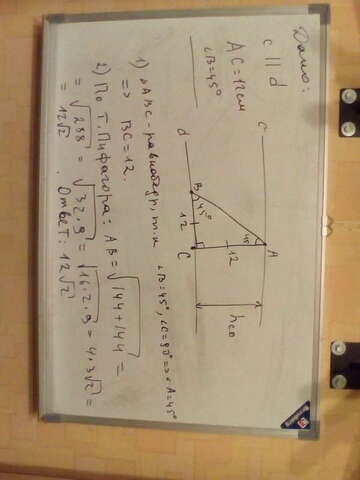 Дано:
c || d
AC = 12 см
∠B = 45°
c
d
A
45°
12
h cd
B
45°
12
C
1) △ABC - равнобедр, т.к ∠B = 45°, ∠C = 90° => ∠A = 45°
=> BC = 12.
2) По т. Пифагора: AB = √144 + 144 =
= √288 = √32 · 9 = √16 · 2 · 9 = 4 · 3√2 =
= 12√2 . Ответ: 12√2